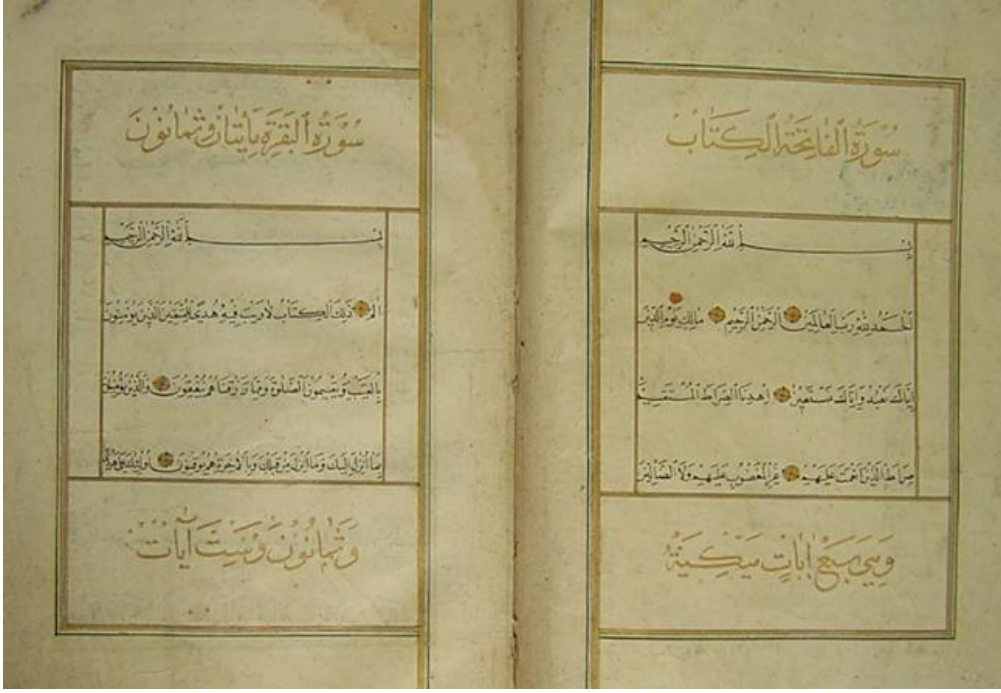 سُورَةُ الفَاتِحَةُ الكِتَابْ
بِسْمِ اللّٰهِ الرَّحْمٰنِ الرَّحِيمِ
الحَمْدُ لِلّٰهِ رَبِّ العَالَمِينَ الرَّحْمٰنِ الرَّحِيمِ مَالِكِ يَوْمِ الدِّينِ
إِيَّاكَ نَعْبُدُ وَإِيَّاكَ نَسْتَعِينُ اِهْدِنَا الصِّرَاطَ المُسْتَقِيمَ
صِرَاطَ الَّذِينَ أَنْعَمْتَ عَلَيْهِمْ غَيْرِ المَغْضُوبِ عَلَيْهِمْ وَلَا الضَّالِّينَ
وَهِيَ سَبْعُ اٰيَاتٍ مَكِّيَةٌ
سُورَةُ البَقَرَةِ مِايَتَانْ وَثَمَانُوْنَ
بِسْمِ اللّٰهِ الرَّحْمٰنِ الرَّحِيمِ
الم ذٰلِكَ الكِتَابُ لَا رَيْبَ فِيهِ هُدًى لِلْمُتَّقِينَ الَّذِينَ يُؤْمِنُونَ
بِالْغَيْبِ وَيُقِيمُونَ الصَّلٰوةَ وَمِمَّا رَزَقْنَاهُمْ يُنْفِقُونَ وَالَّذِينَ يُؤْمِنُونَ
بِمَا أُنْزِلَ إِلَيْكَ وَمَا أُنْزِلَ مِنْ قَبْلِكَ وَبِالْآخِرَةِ هُمْ يُوقِنُونَ أُولٰئِكَ عَلَى هُدًى
وَثَمَانُوْنَ وَسِتَّ آيَاتْ